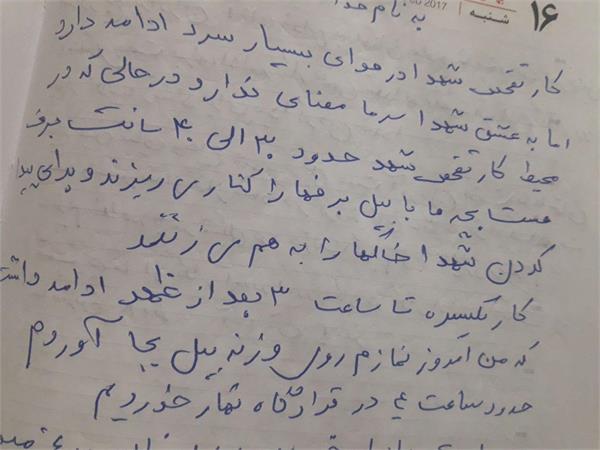 ۱۶ شنبه 2017 به نام خدا
کار تفحص شهدا در هوای بسیار سرد ادامه دارد
اما به عشق شهدا سرما معنای ندارد و در حالی که در
محیط کار تفحص شهد حدود ۳۰ الی ۴۰ سانت برف
هست بچه ها با بیل برفها را کناری ریزند و برای پیدا
کردن شهدا خاکها را به هم می زنند
کار یکسره تا ساعت ۳ بعد از ظهر ادامه داشت
که من امروز نمازم روی وزنه بیل بجا آوردم
حدود ساعت ۴ در قرارگاه نهار خوردیم